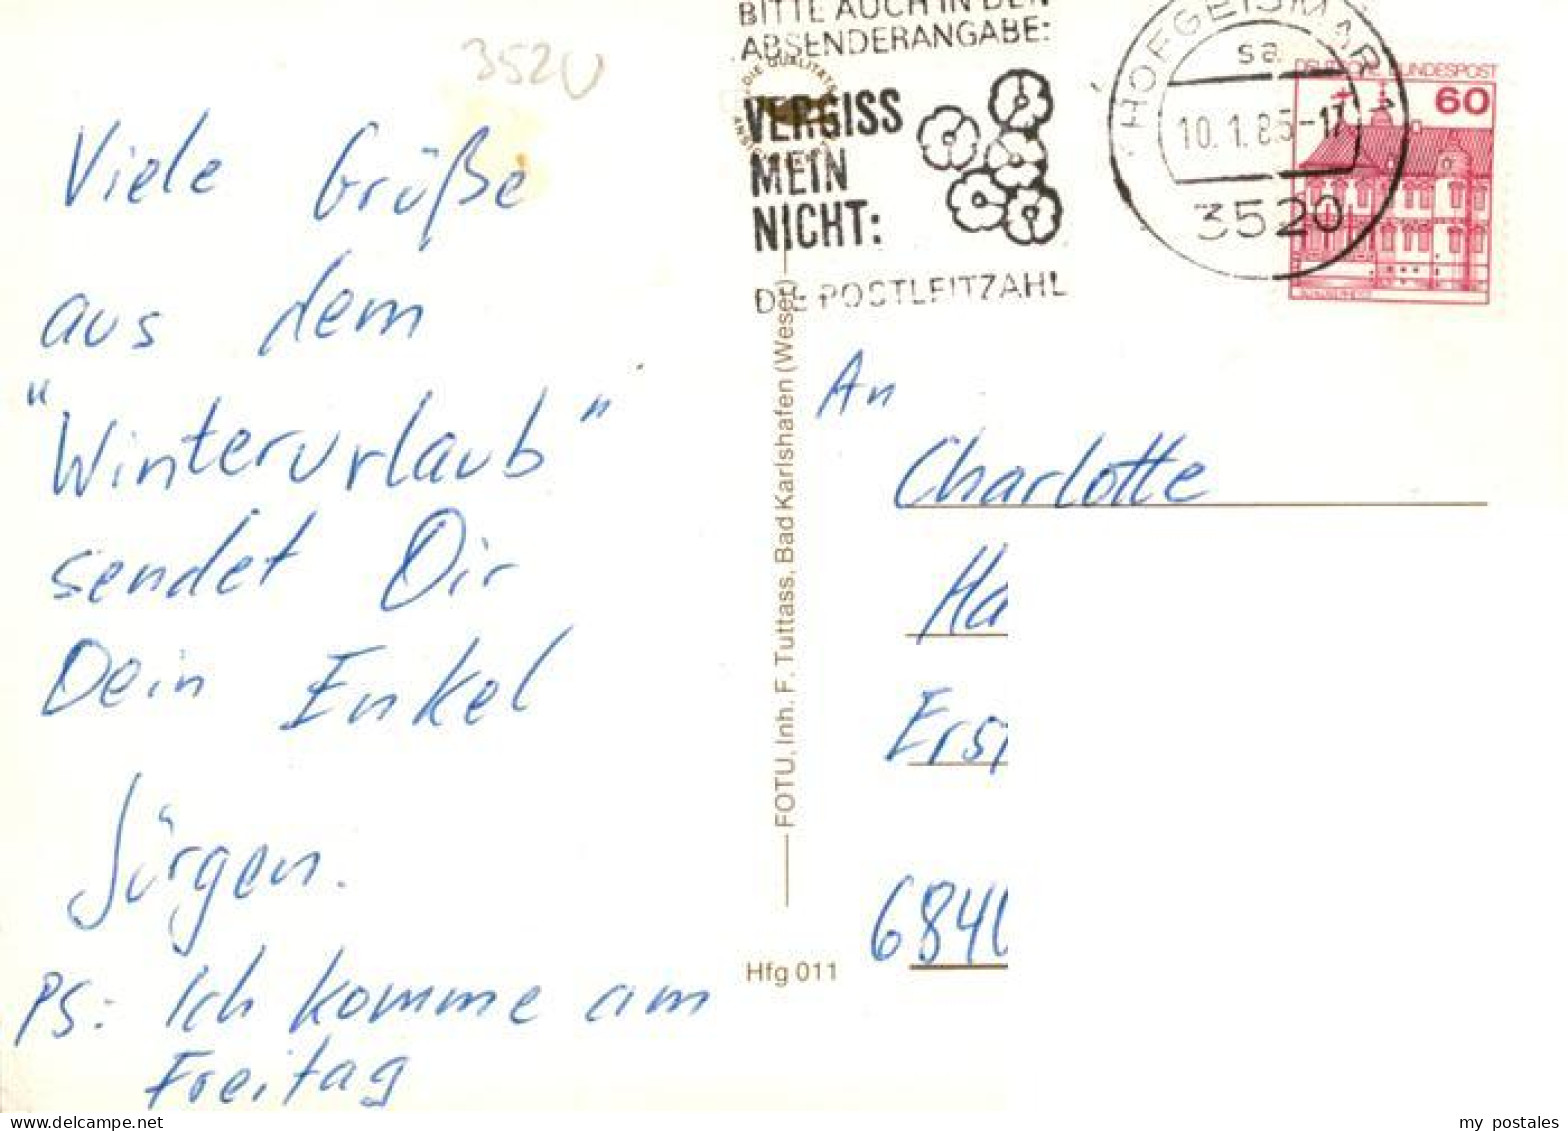 352U
Viele Grüße
aus dem
"Winterurlaub"
sendet Dir
Dein Enkel
Jürgen.
PS: Ich komme am
Freitag
BITTE AUCH IN DEN
ABSENDERANGABE:
VERGISS
MEIN
NICHT:
DIE POSTLEITZAHL
DIE QUALITÄTS
HOFGEISMAR 1
sa
10.1.85-17
3520
DEUTSCHE BUNDESPOST
60
FOTU, Inh. F. Tuttass, Bad Karlshafen (Weser)
Hfg 011
An
Charlotte
Ha
Ers
684
my postales